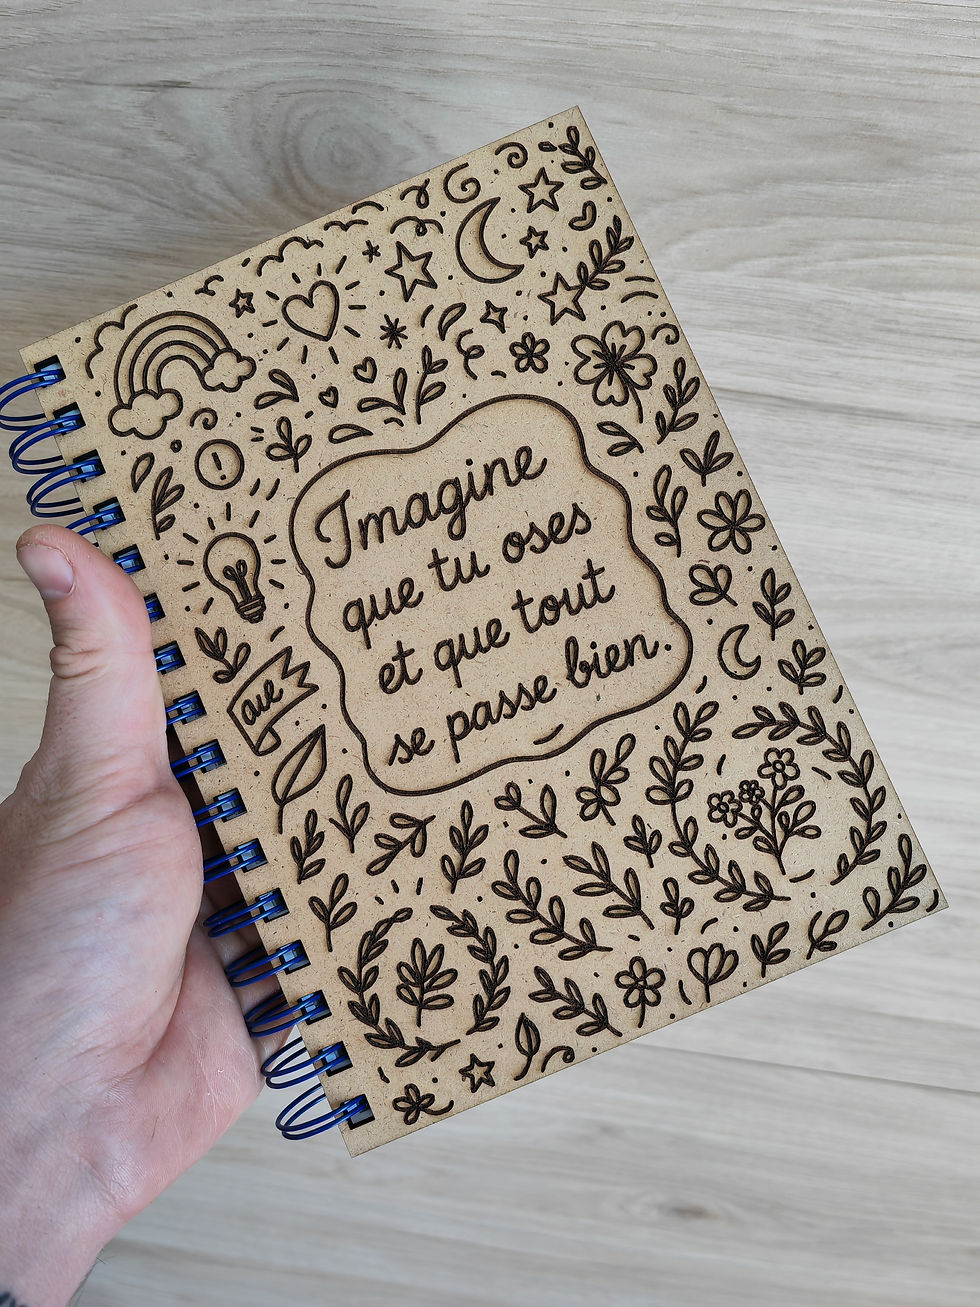 Imagine
que tu oses
et que tout
se passe bien.
!